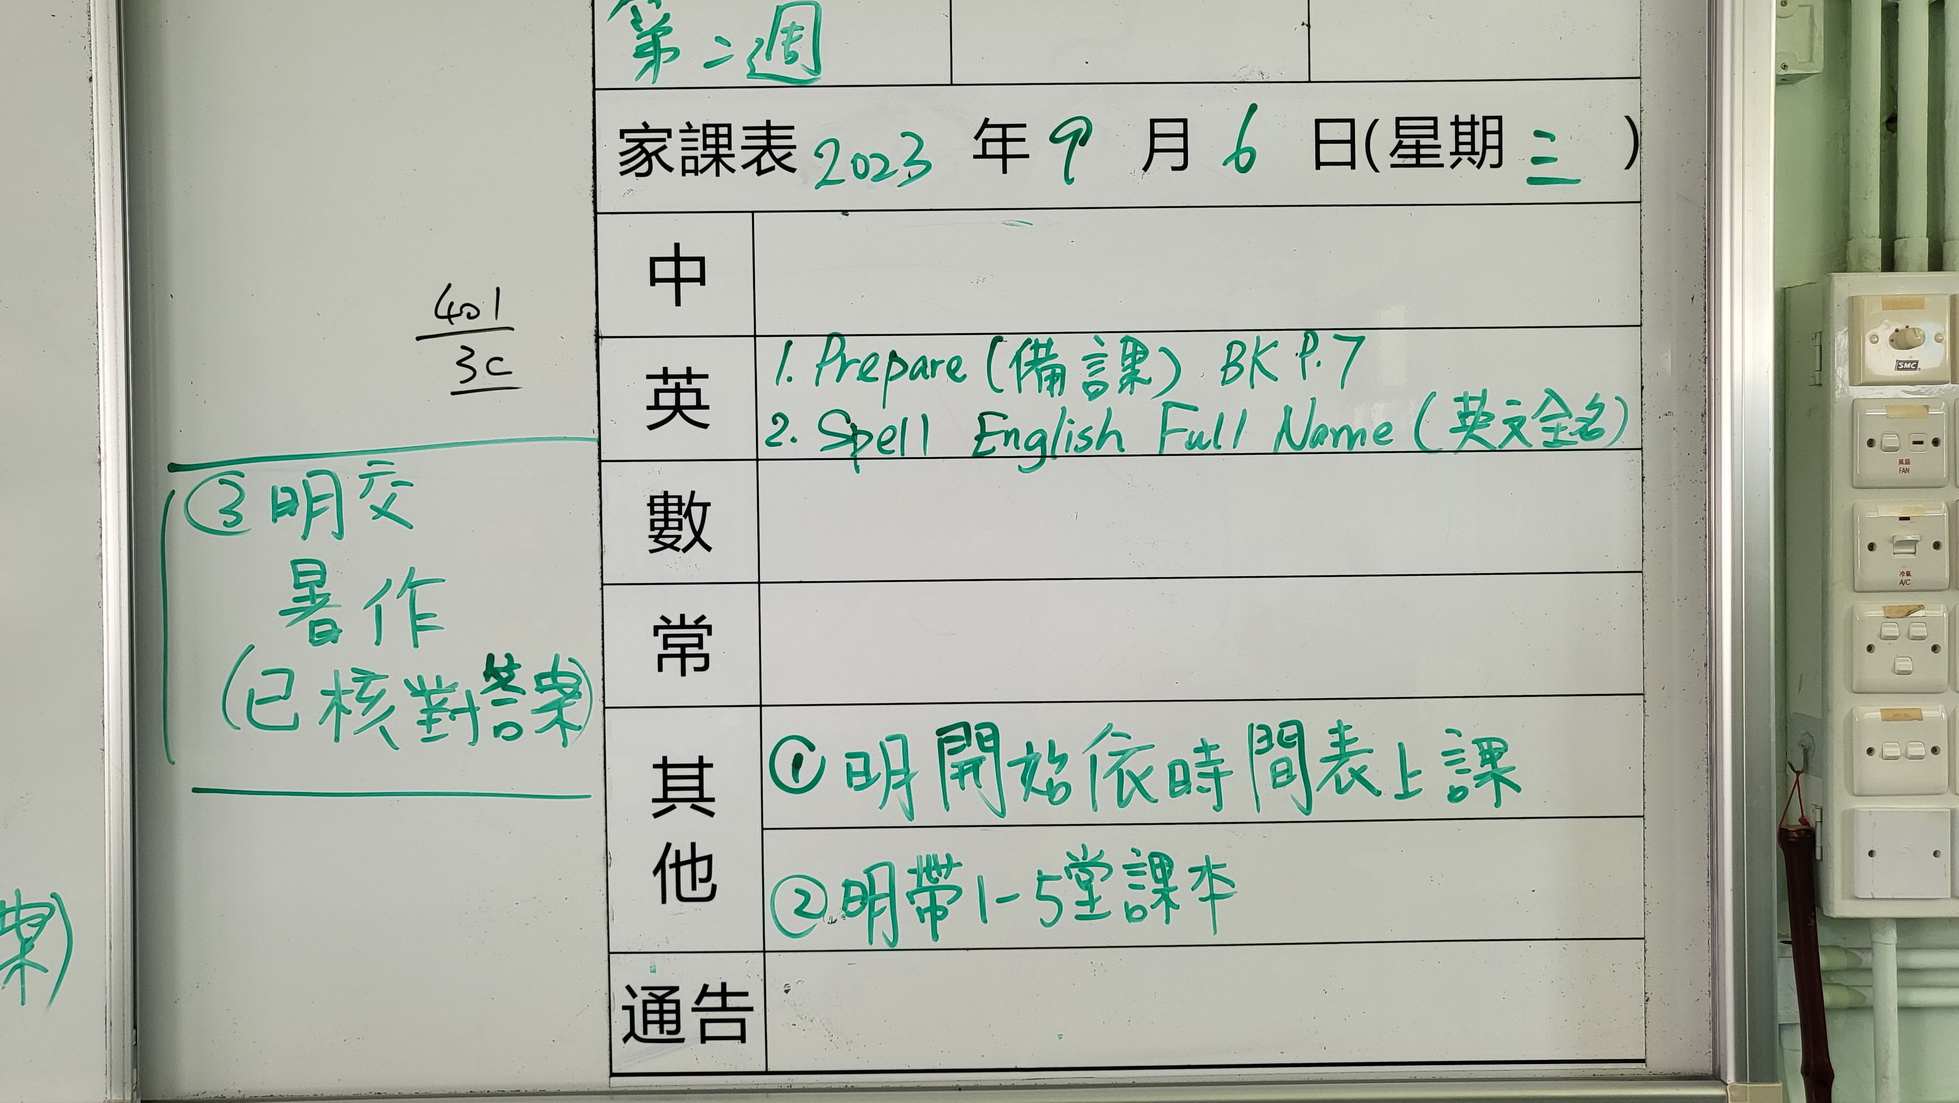 第二週
家課表 2023 年 9 月 6 日(星期 三 )
中
英
1. Prepare (備課) BK P.7
2. Spell English Full Name (英文全名)
數
常
其他
① 明開始依時間表上課
② 明帶1-5堂課本
通告
401
3C
③ 明交
暑作
(已核對答案)
案)
SMC
風扇
FAN
冷氣
A/C